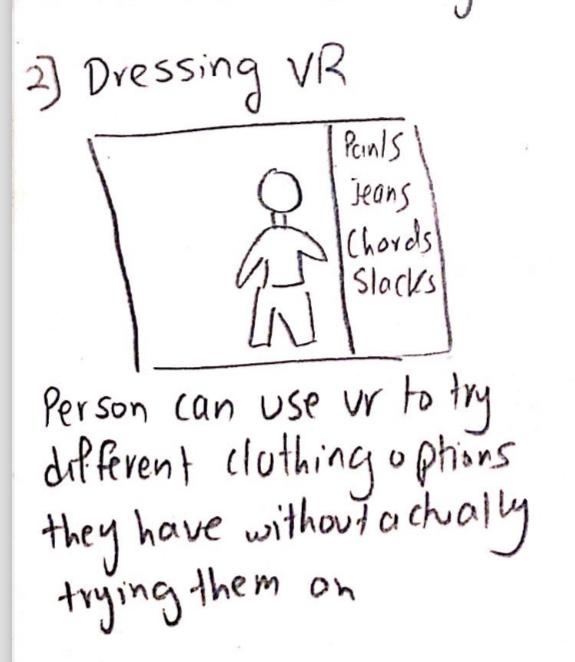 2] Dressing VR
Pants
Jeans
Chords
Slacks
Person can use vr to try
different clothing options
they have without actually
trying them on